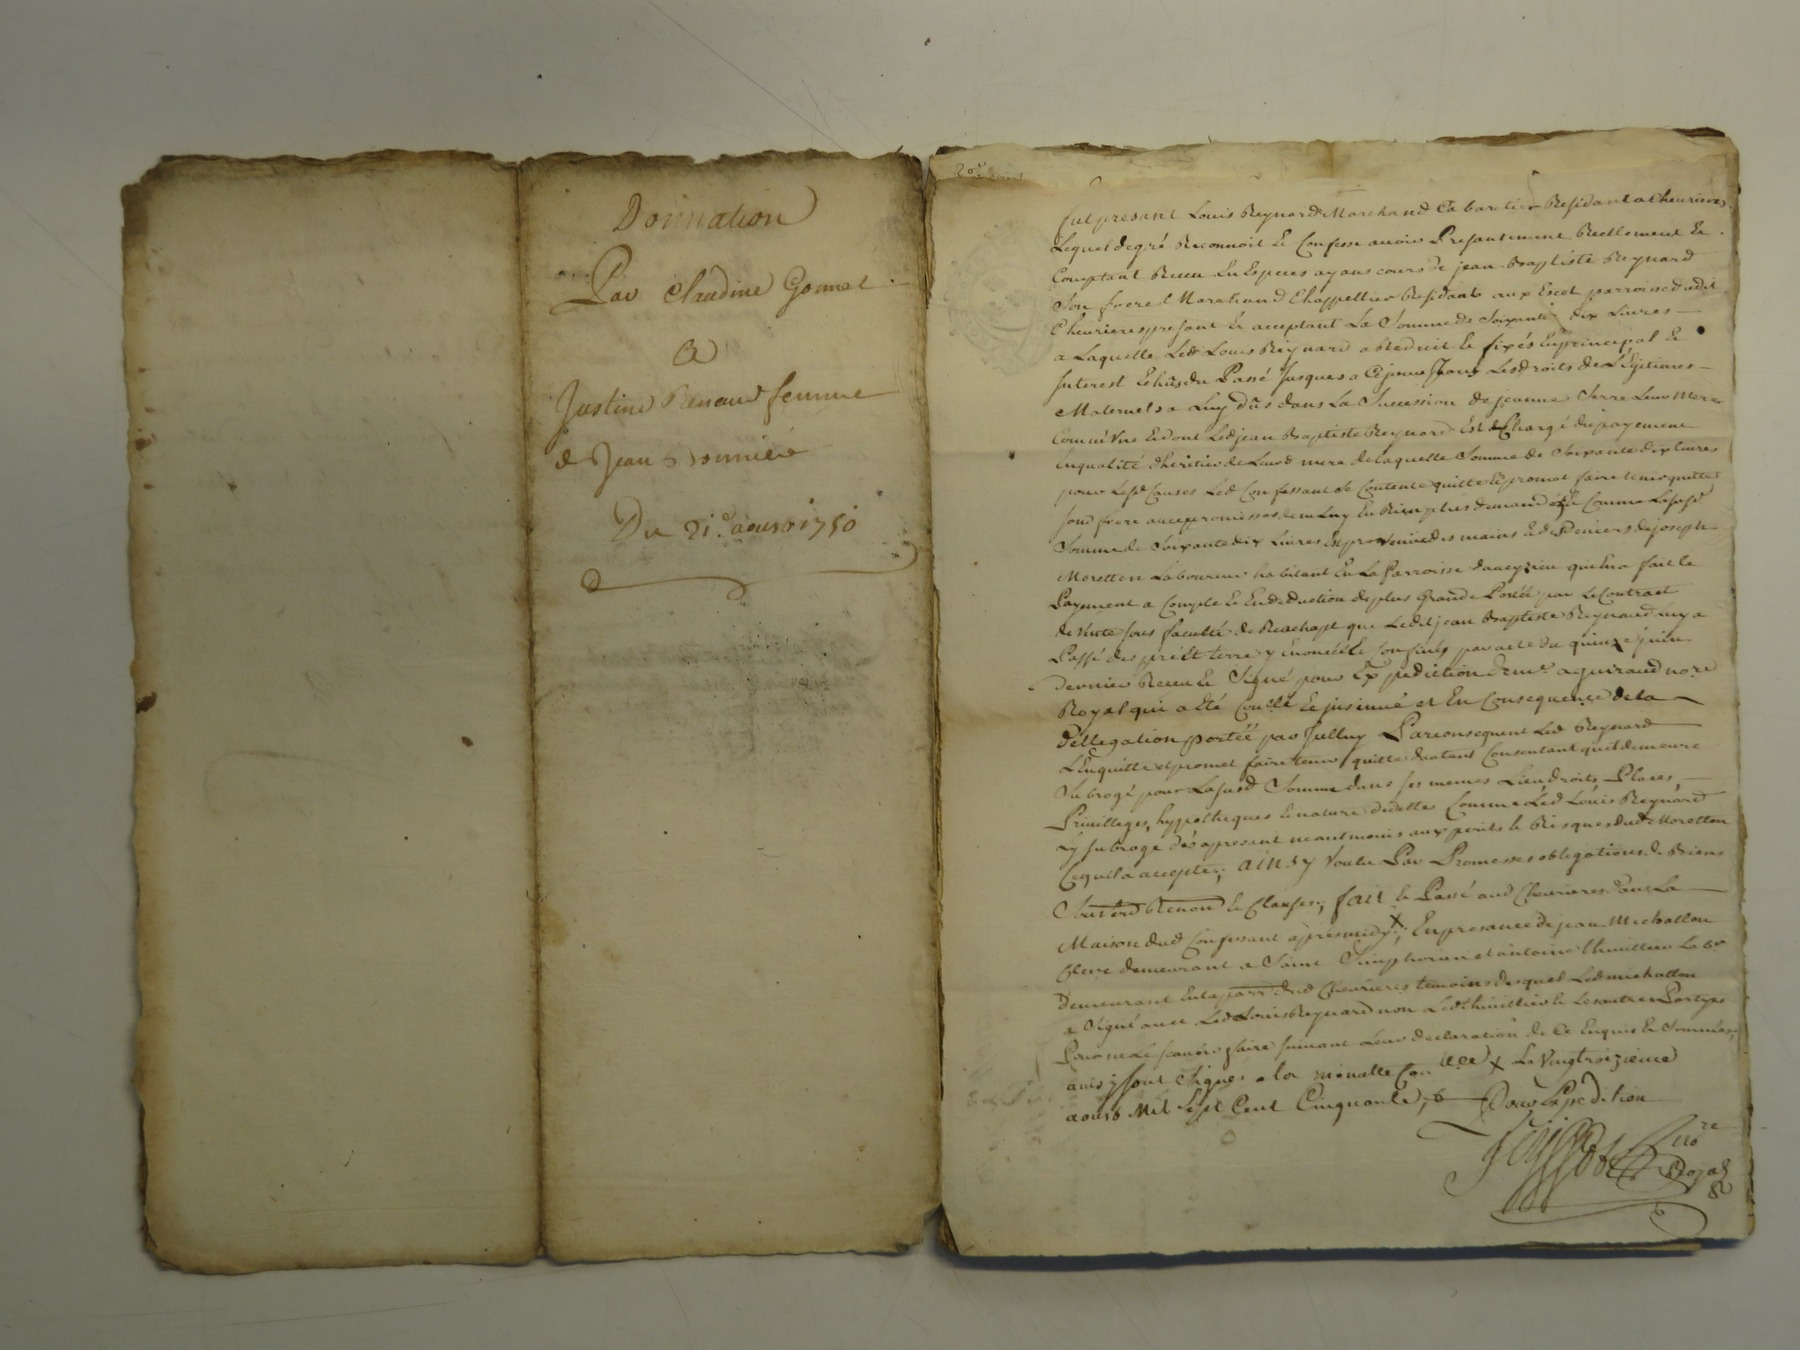 Donnation
Par Claudine Gonnet
A
Justine Renaud femme
de Jean Bonniere
Du 21e aoust 1750
fut présant Louis Reynard Marchand Cabartier Residant a Cheurieres
Lequel de gré Reconnoit et Confesse auoir Presantement Reellement et
Comptant Receu En Especes ayans cours de jean Baptiste Reynard
Son frere Marchand Chappellier Residant aux parroisse dudit
Cheurieres presant et acceptant La Somme de Soixante dix Livres
a Laquelle Led Louis Reynard a Reduit et fixés En principal et
Interest Echus du Passé Jusques a Ce jour Les droits de Legitimes
Maternels a Luy dûs dans La Succession de jeanne Serre Leur Mere
Commune Et dont Led jean Baptiste Reynard Est Chargé du payement
En qualité d'heritier de Leurd mere de laquelle Somme de Soixante dix Livres
pour Les Causes Led Confessant Se Contente quitte Et promet faire tenir quitte
Sond frere auec promesses de ne Luy En Rien plus demander Et Comme La
Somme de Soixante dix Livres En provenue des mains Et des Deniers de joseph
Moretton Laboureur habitant En La Parroisse daueyzieu qui En a fait le
Payement a Compte Et En deduction de plus Grande Portée par Le Contract
de Vente Sous faculté de Reachapt que Ledit jean Baptiste Reynard Luy a
Passé des pré Et terre y Enoncés Et Confinés par acte du quinze juin
Dernier Receu Et Signé pour Expedition de me aguiraud nore
Royal qui a Eté Conllé Et jnsinué et En Consequence de la
Dellegation portée par Jcelluy Par consequent Led Reynard
L'En quitte et promet faire tenir quitte d'autant Consentant quil demeure
Subrogé pour La Susd Somme dans Ses memes Lieu droits Places
Privilleges, hypotheques Et nature de dette Comme Led Louis Reynard
L'y Subroge dés apresent neantmoins aux perils Et Risques dud Moretton
Ce quil a accepté; ainsy voulu Par Promesses obligations de Biens
Et Clauses; fait Et Passé aud Cheurieres dans La
Maison dud Confessant apres midy; En presance de jean Michallon
Clerc demeurant a Saint Simphorien et antoine thuillier Lab
Demeurant En La parr dud Cheurieres temoins desquels Led michallon
a Signé auec Led Louis Reynard non Led thuillier Et Les autres Partyes
Pour ne Le Scauoir faire Suivant Leur declaration de Ce Enquis Et Sommés
ainsy Sont Signes a la minutte Conllée x Le vingtroizieme
aoust Mil Sept Cent Cinquante; Pour Expedition
nore
Royal